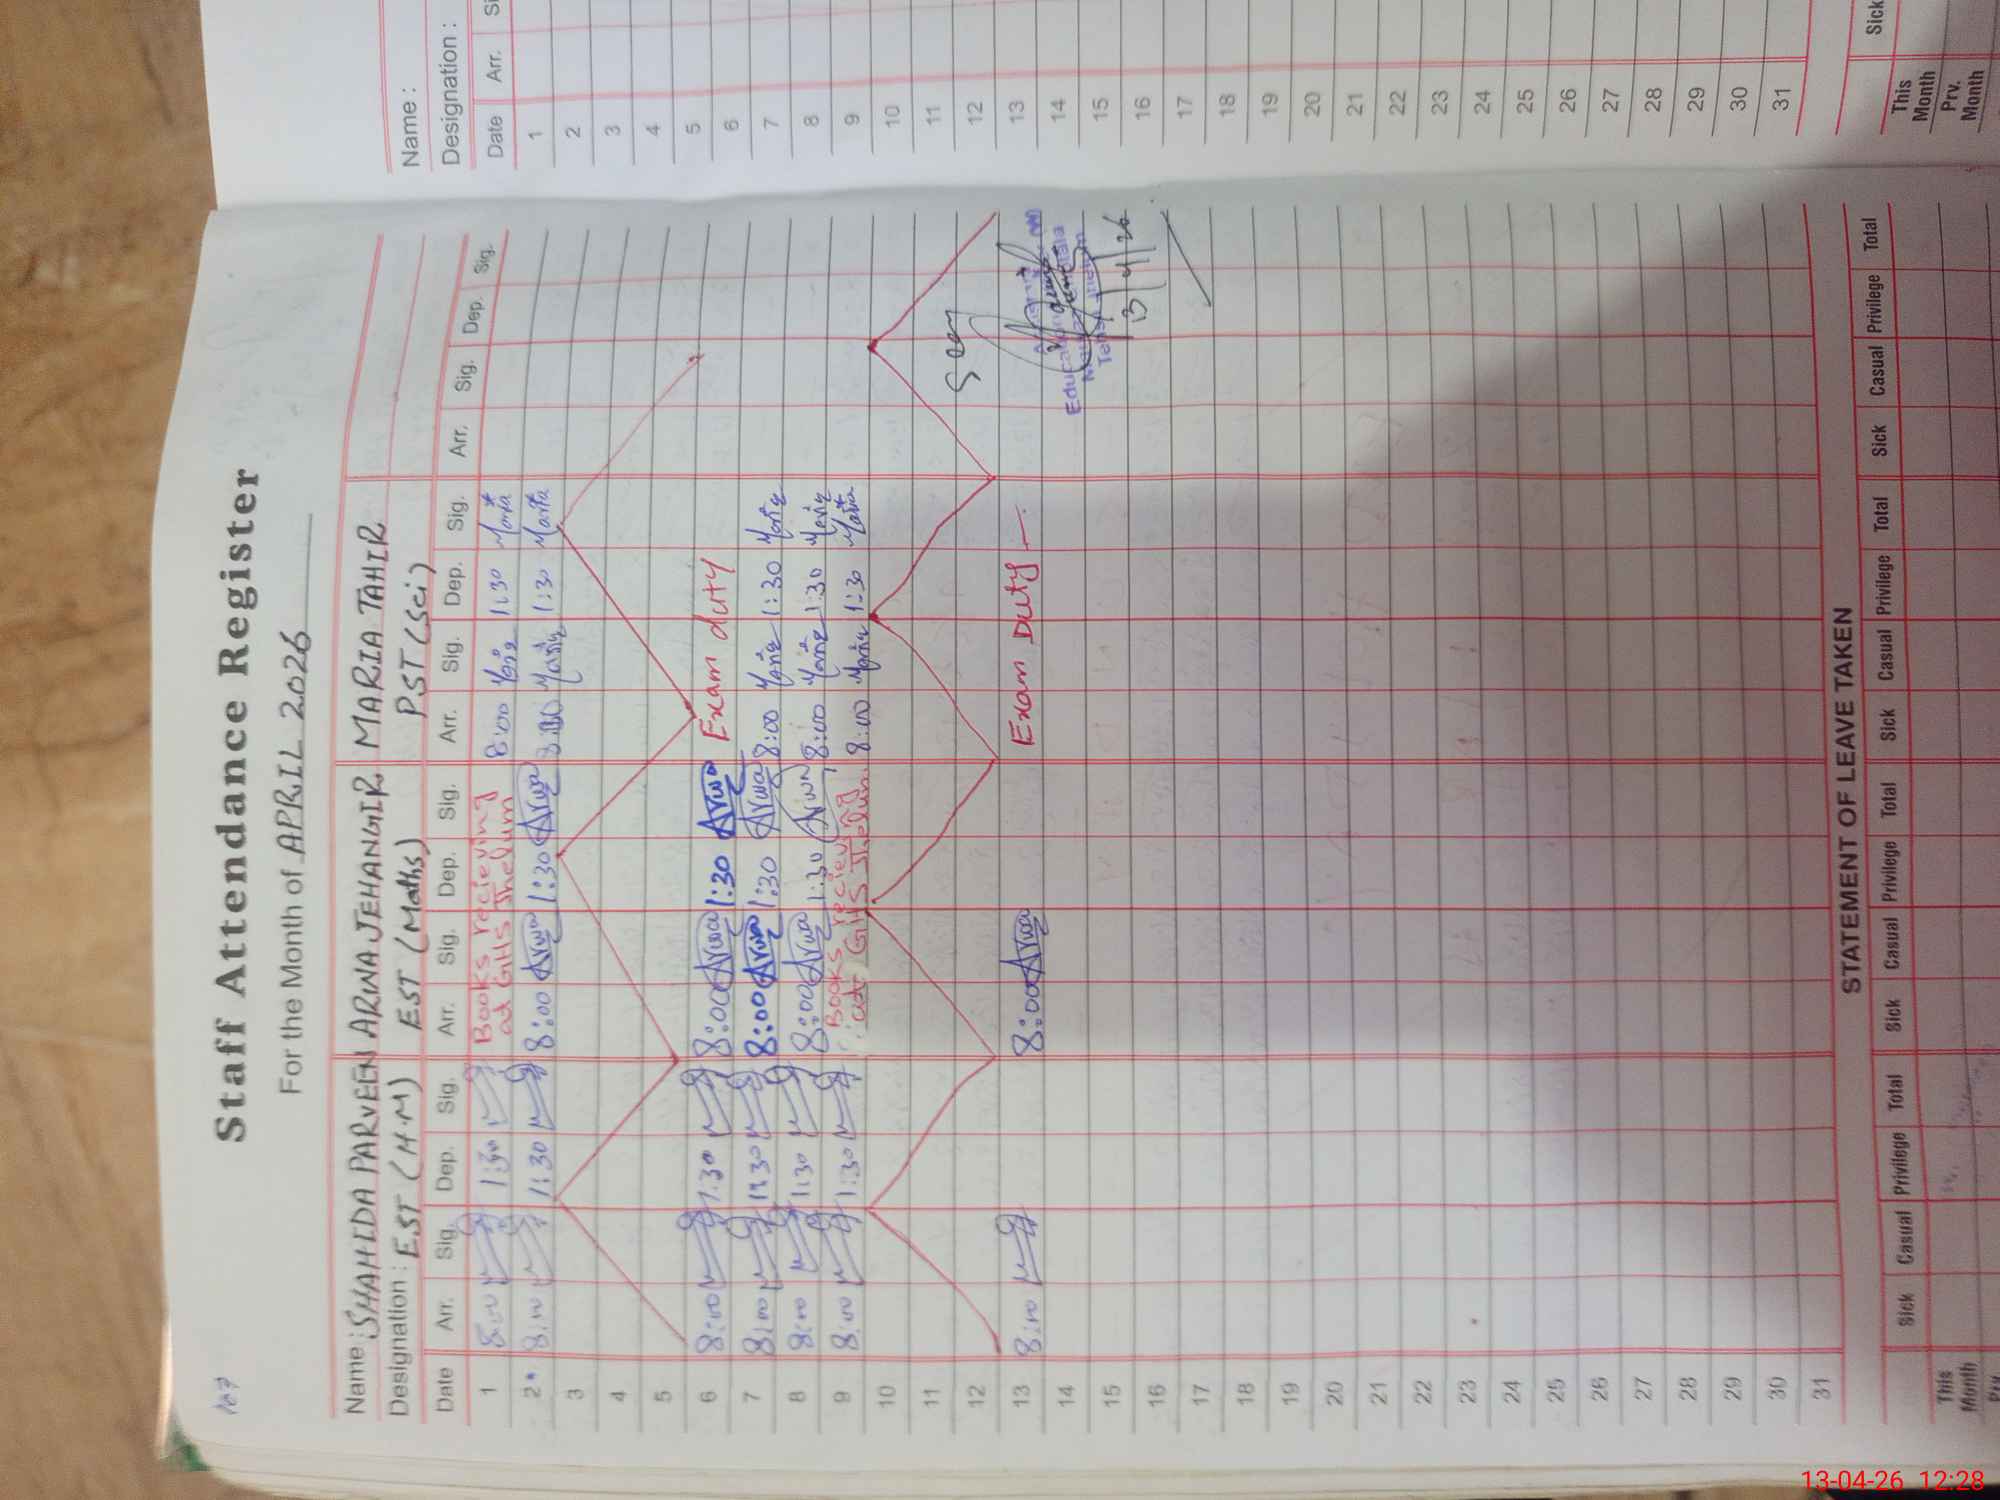 107
Staff Attendance Register
For the Month of APRIL 2026
Name : SHAHIDA PARVEEN ARWA JEHANGIR MARIA TAHIR
Designation : EST (H.M) EST (Maths) PST (Sci)
Date Arr. Sig. Dep. Sig. Arr. Sig. Dep. Sig. Arr. Sig. Dep. Sig. Arr. Sig. Dep. Sig.
1 8:00 1:30 Books recieving at GHS Jhelum 8:00 Maria 1:30 Maria
2 8:00 1:30 8:00 Arwa 1:30 Arwa 8:00 Maria 1:30 Maria
3
4
5
6 8:00 1:30 8:00 Arwa 1:30 Arwa Exam duty
7 8:00 1:30 8:00 Arwa 1:30 Arwa 8:00 Maria 1:30 Maria
8 8:00 1:30 8:00 Arwa 1:30 Arwa 8:00 Maria 1:30 Maria
9 8:00 1:30 Books recieving at GHS Jhelum 8:00 Maria 1:30 Maria
10
11
12 Seen
13 8:00 8:00 Arwa Exam Duty
14
15 13/4/26
16
17
18
19
20
21
22
23
24
25
26
27
28
29
30
31
STATEMENT OF LEAVE TAKEN
Sick Casual Privilege Total Sick Casual Privilege Total Sick Casual Privilege Total Sick Casual Privilege Total
This Month
Name :
Designation :
Date Arr.
1
2
3
4
5
6
7
8
9
10
11
12
13
14
15
16
17
18
19
20
21
22
23
24
25
26
27
28
29
30
31
Sick
This Month
Prv. Month
13-04-26 12:28